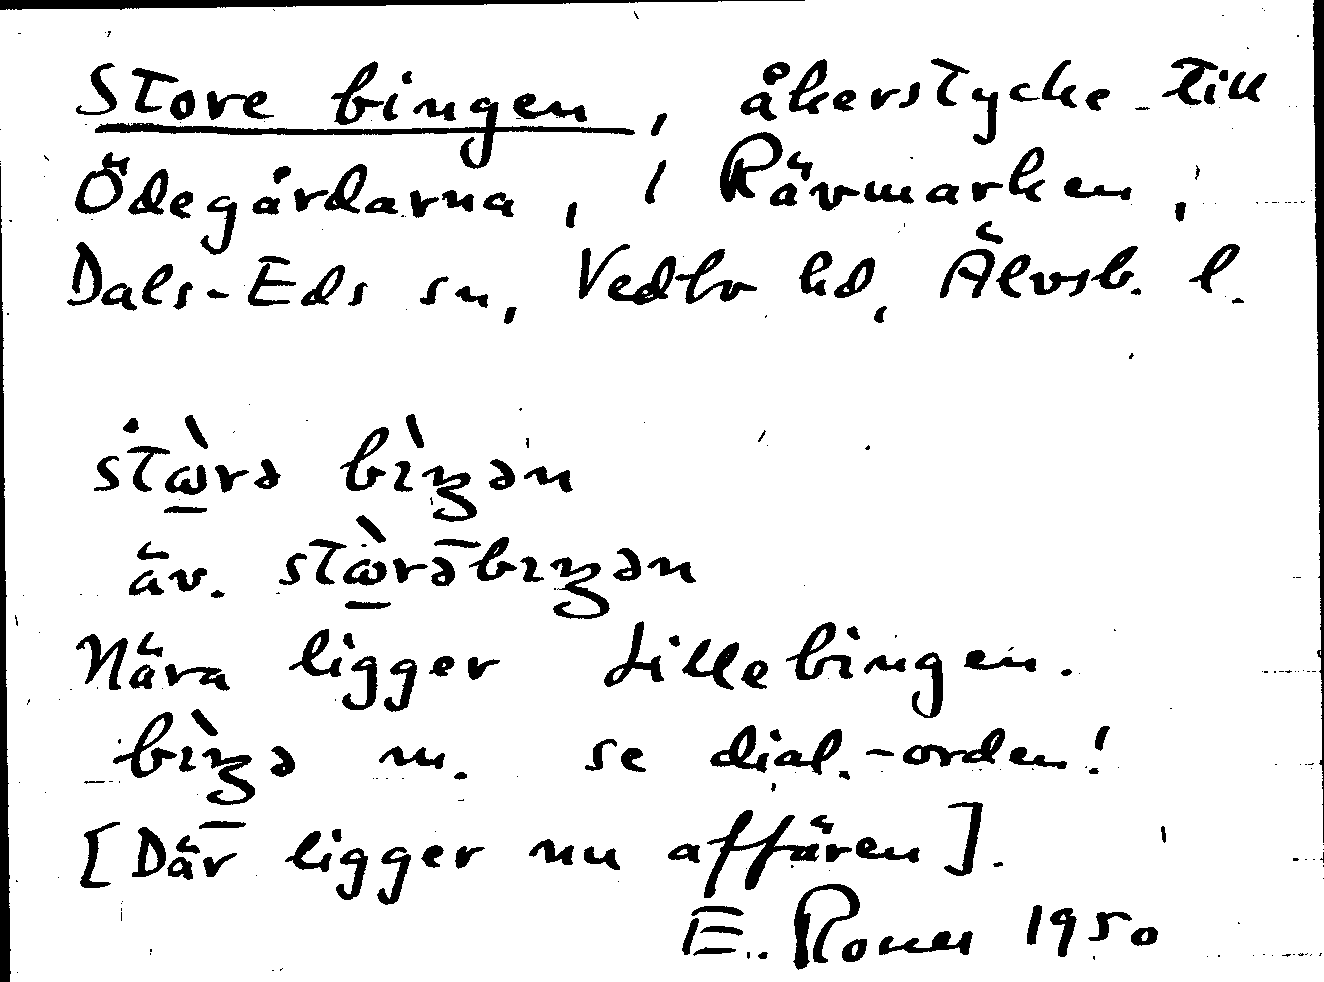 Store bingen, åkerstycke till
Ödegårdarna, i Rävmarken,
Dals-Eds sn, Vedbo hd, Älvsb. l.
stꞷ̀rə bìŋən
äv. stꞷ̀rəbɪŋən
Nära ligger Lillebingen.
bìŋə m. se dial.-orden!
[Där ligger nu affären].
E. 1950